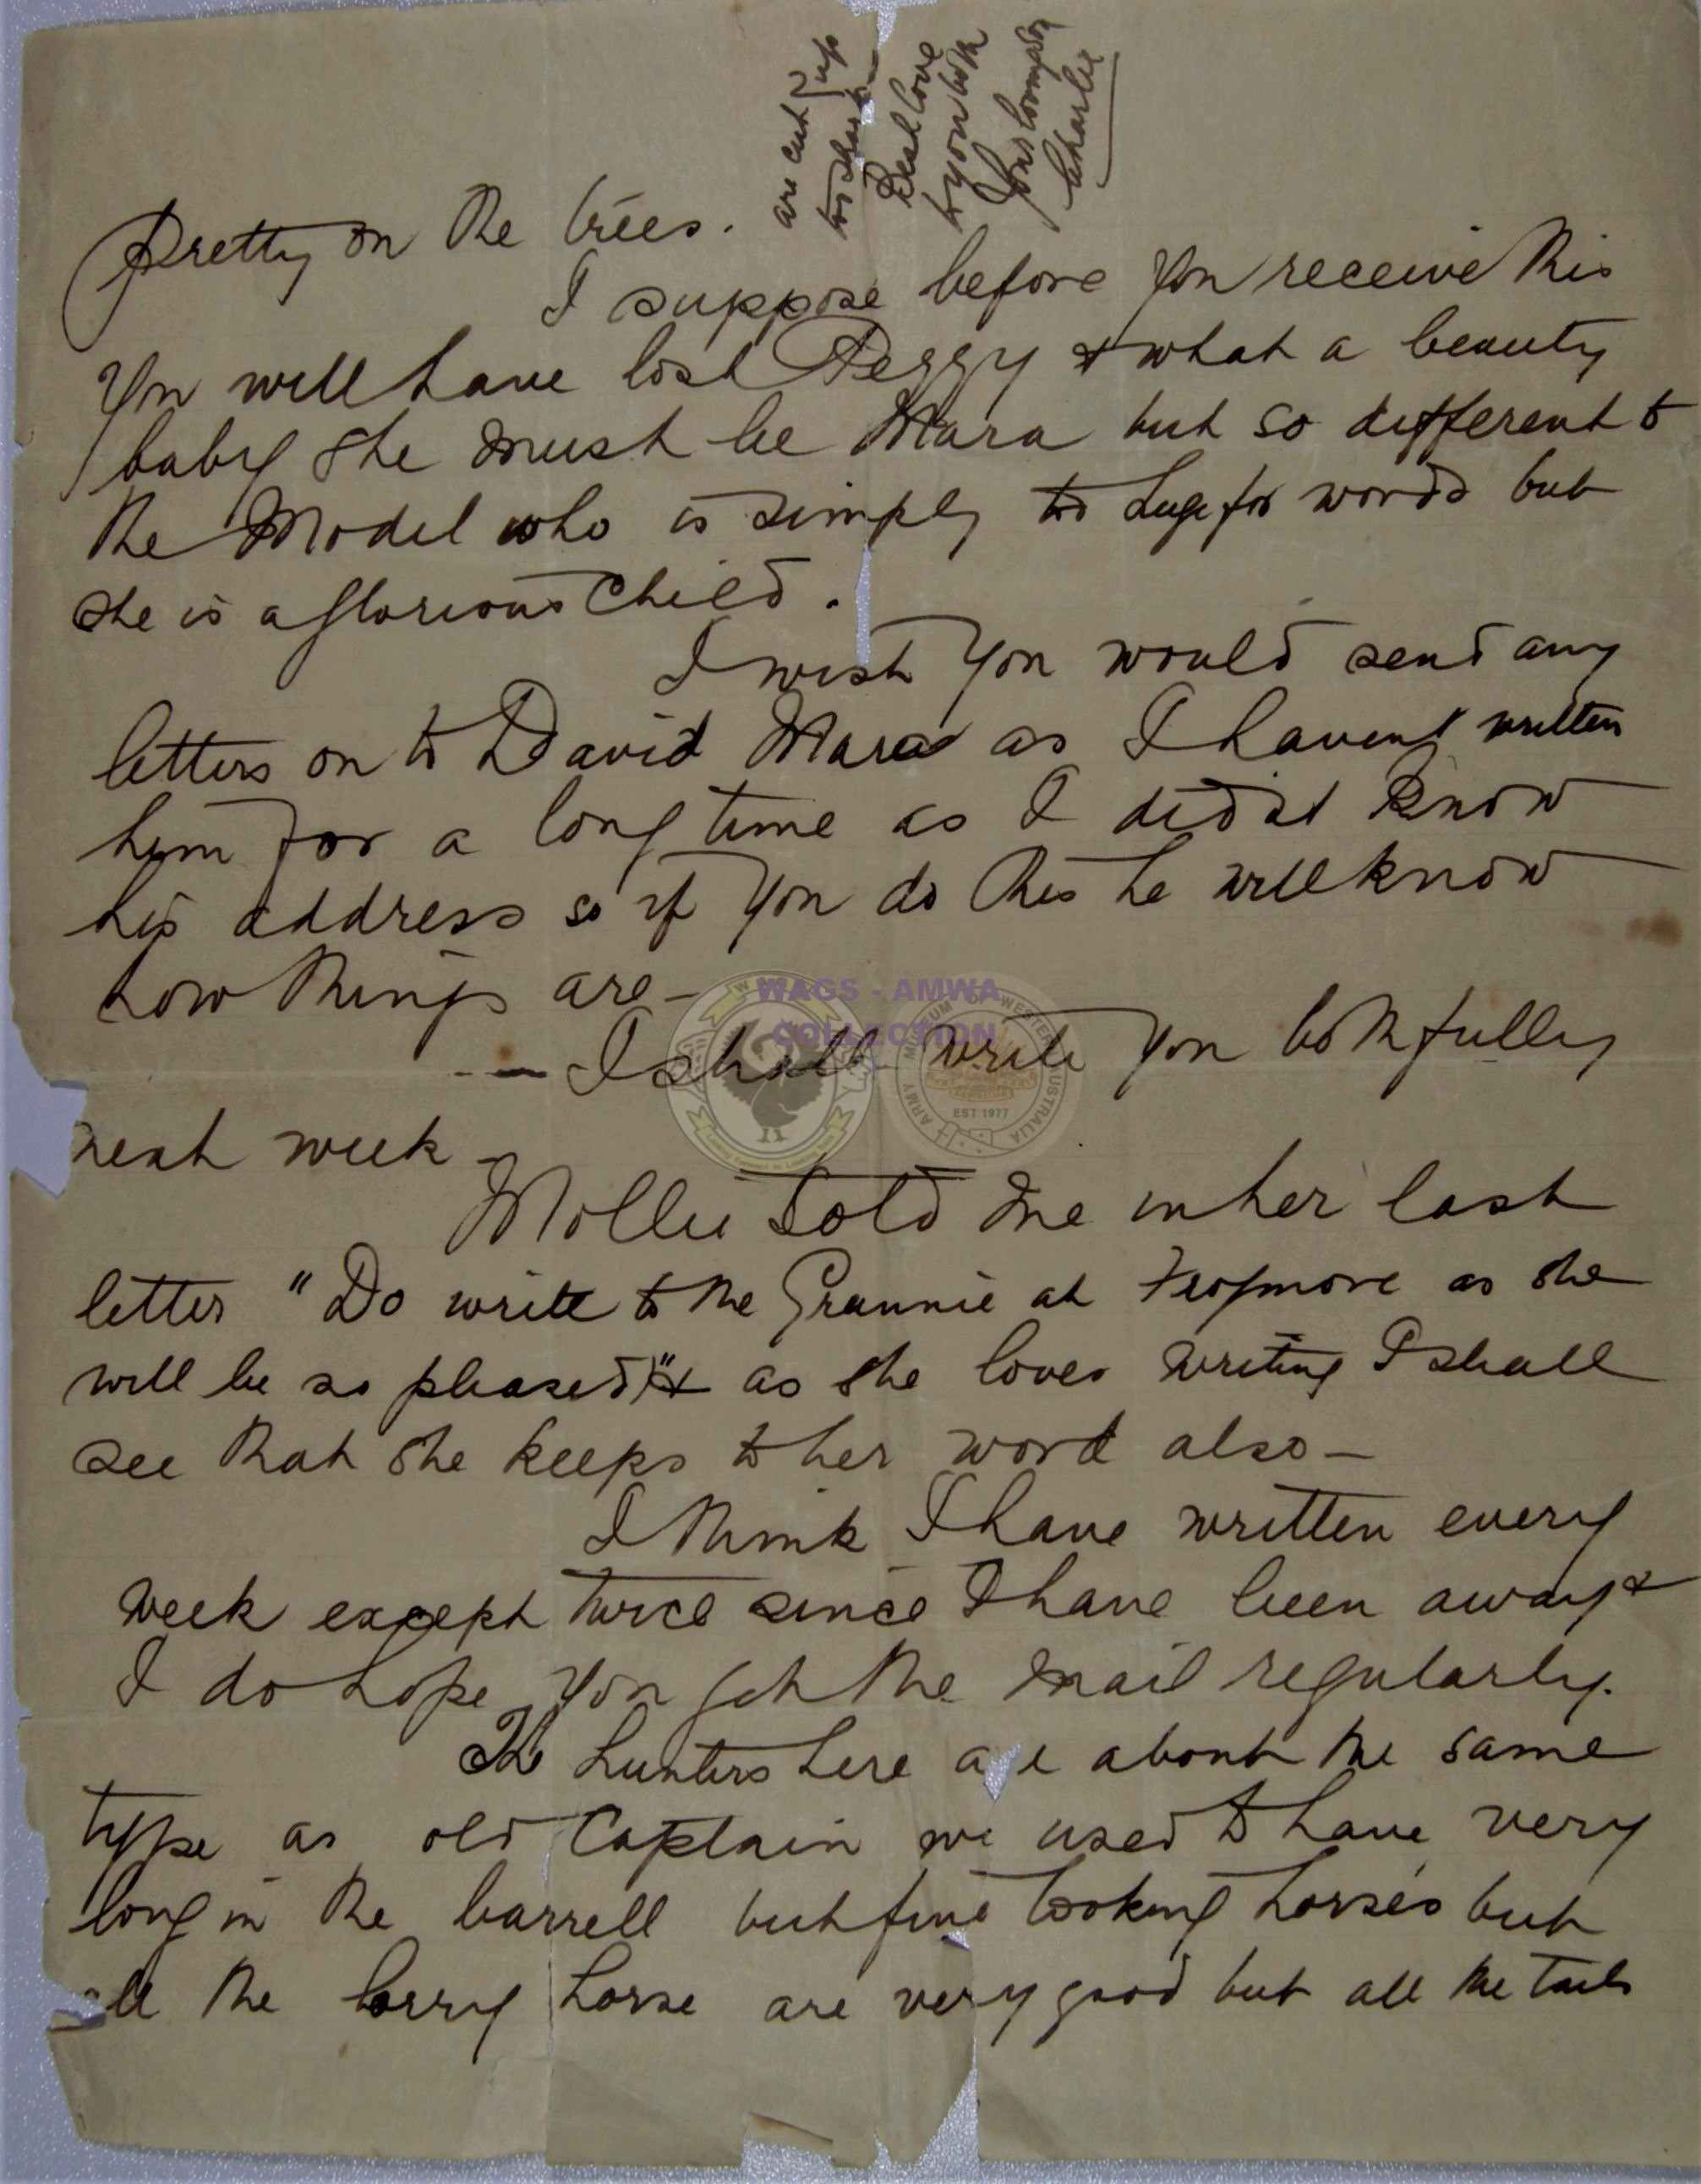 Pretty on the trees.
I suppose before you receive this
you will have lost Peggy & what a beauty
baby she must be Mara but so different to
the Model who is simply too huge for words but
she is a glorious child.
I wish you would send any
letters on to David Mara as I havent written
him for a long time as I didnt know
his address so if you do this he will know
how things are -
-- I shall write you both fully
next week -
Mollie told me in her last
letter "Do write to the Grannie at Frogmore as she
will be so pleased" & as she loves writing I shall
see that she keeps to her word also -
I think I have written every
week except twice since I have been away &
I do hope you get the mail regularly.
The hunters here are about the same
type as old Captain we used to have very
long in the barrell but fine looking horses but
all the lorry horse are very good but all the tails
are cut up
too short -
Best love
to you both
Your loving boy
Charlie
WAGS - AMWA
COLLECTION
ARMY MUSEUM OF WESTERN AUSTRALIA
EST 1977